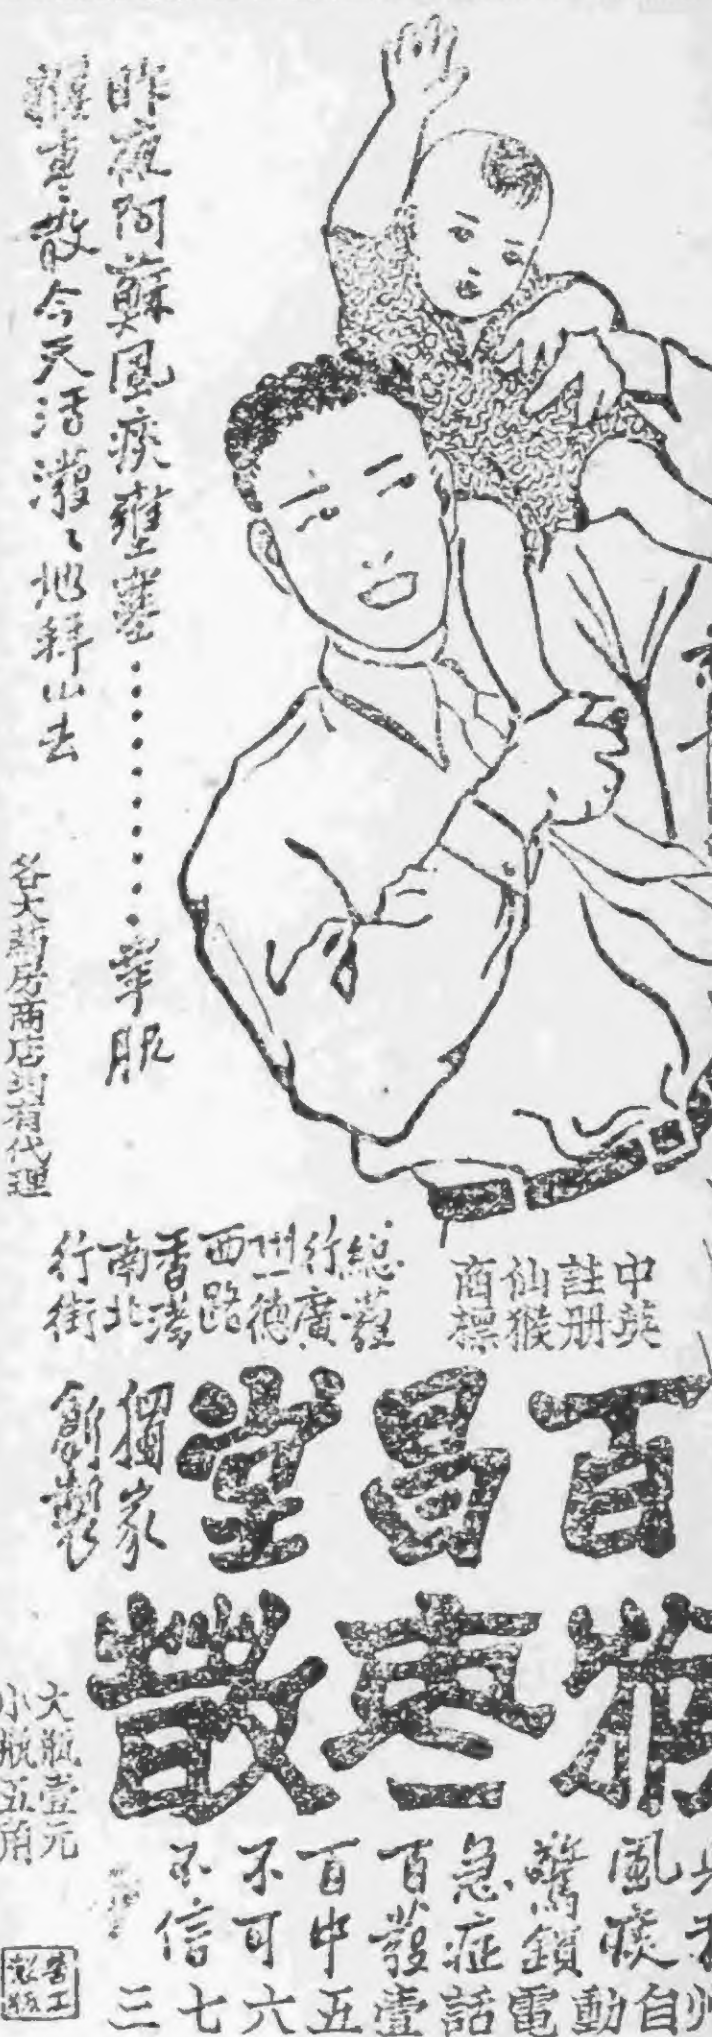 昨夜阿蘇風痰壅塞·········幸服
猴棗散今天活潑、地拜山去
各大藥房商店均有代理
中英
註册
仙猴
商標
總發
行廣
州一德
西路
香港
南北
行街
百昌堂
獨家
創製
棗散
大瓶壹元
小瓶五角
風痰
驚鎖
急症
百發
百中
不可
不信
州自動電話壹五六七三